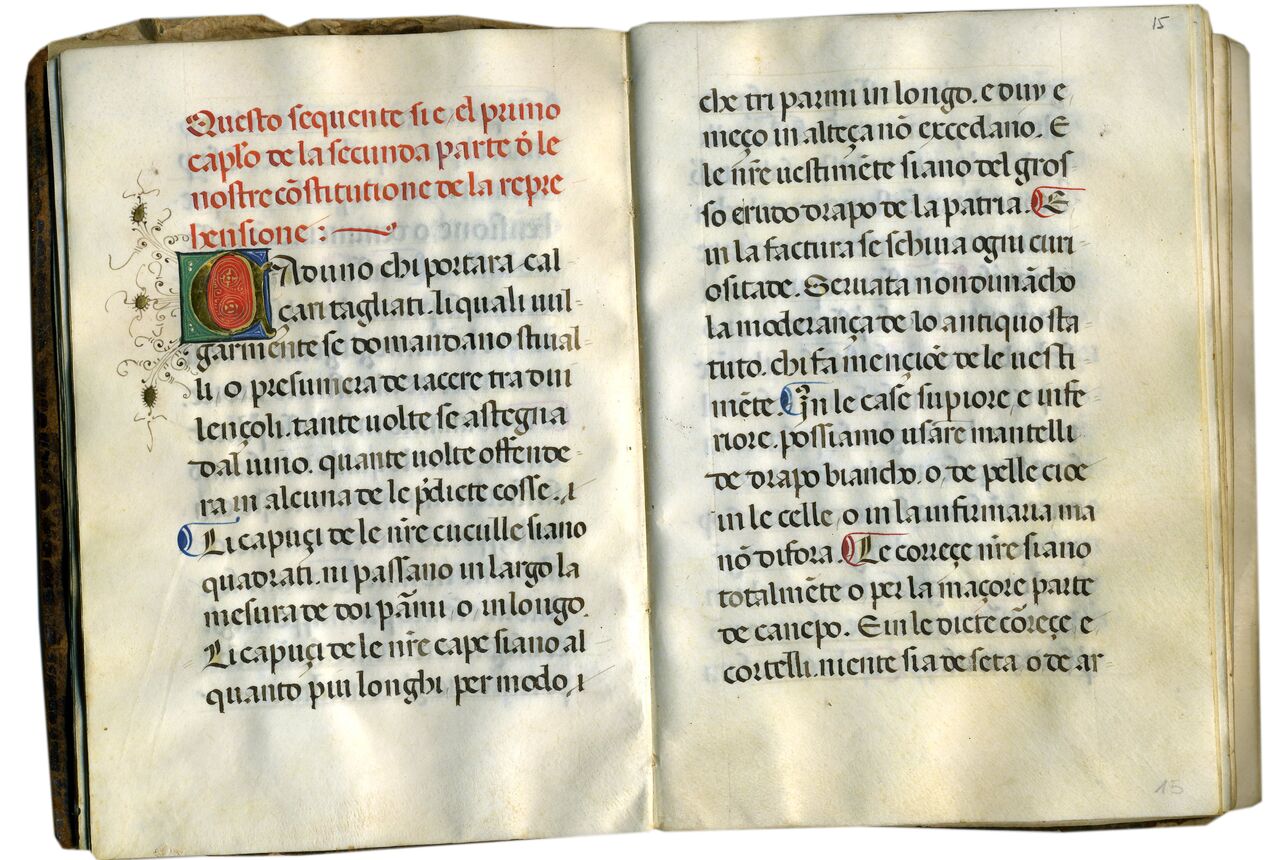 Questo sequente si e, el primo
caplo de la secunda parte d le
nostre cōstitutione de la repre
hensione :
CAduno chi portara cal
cari tagliati. li quali uul-
garmente se domandano stiual-
li, o presumera de iacere tra dui
lençoli. tante uolte se astegna
dal uino. quante uolte offende-
ra in alcuna de le p̄dicte cosse.
Li capuçi de le nr̄e cuculle siano
quadrati. ni passano in largo la
mesura de doi pāmi, o in longo.
Li capuçi de le nr̄e cape siano al
quanto piu longhi, per modo,
15
che tri parmi in longo. e duy e
meço in alteça nō excedano. E
le nr̄e uestimēte siano del gros
so crudo drapo de la patria. E
in la factura se schiua ogni curi-
ositade. Seruata nondimācho
la moderança de lo antiquo sta
tuto. chi fa mencioē de le uesti-
mēte. In le case supiore, e infe-
riore. possiamo usare mantelli
de drapo biancho. o, de pelle cioè
in le celle, o in la infirmaria ma
nō difora. Le coreçe nr̄e siano
totalmēte o per la maçore parte
de canepo. E in le dicte cōreçe, e
cortelli. niente sia de seta, o de ar-
15